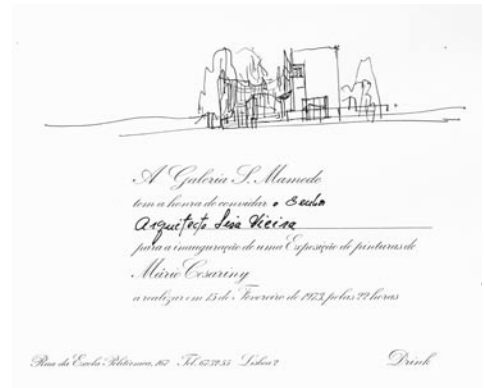 A Galeria S. Mamede
tem a honra de convidar o Senhor
Arquitecto Siza Vieira
para a inauguração de uma Exposição de pinturas de
Mário Cesariny
a realizar em 15 de Fevereiro de 1973, pelas 22 horas
Rua da Escola Politécnica, 167 Tel. 67 32 55 Lisboa 2 Drink